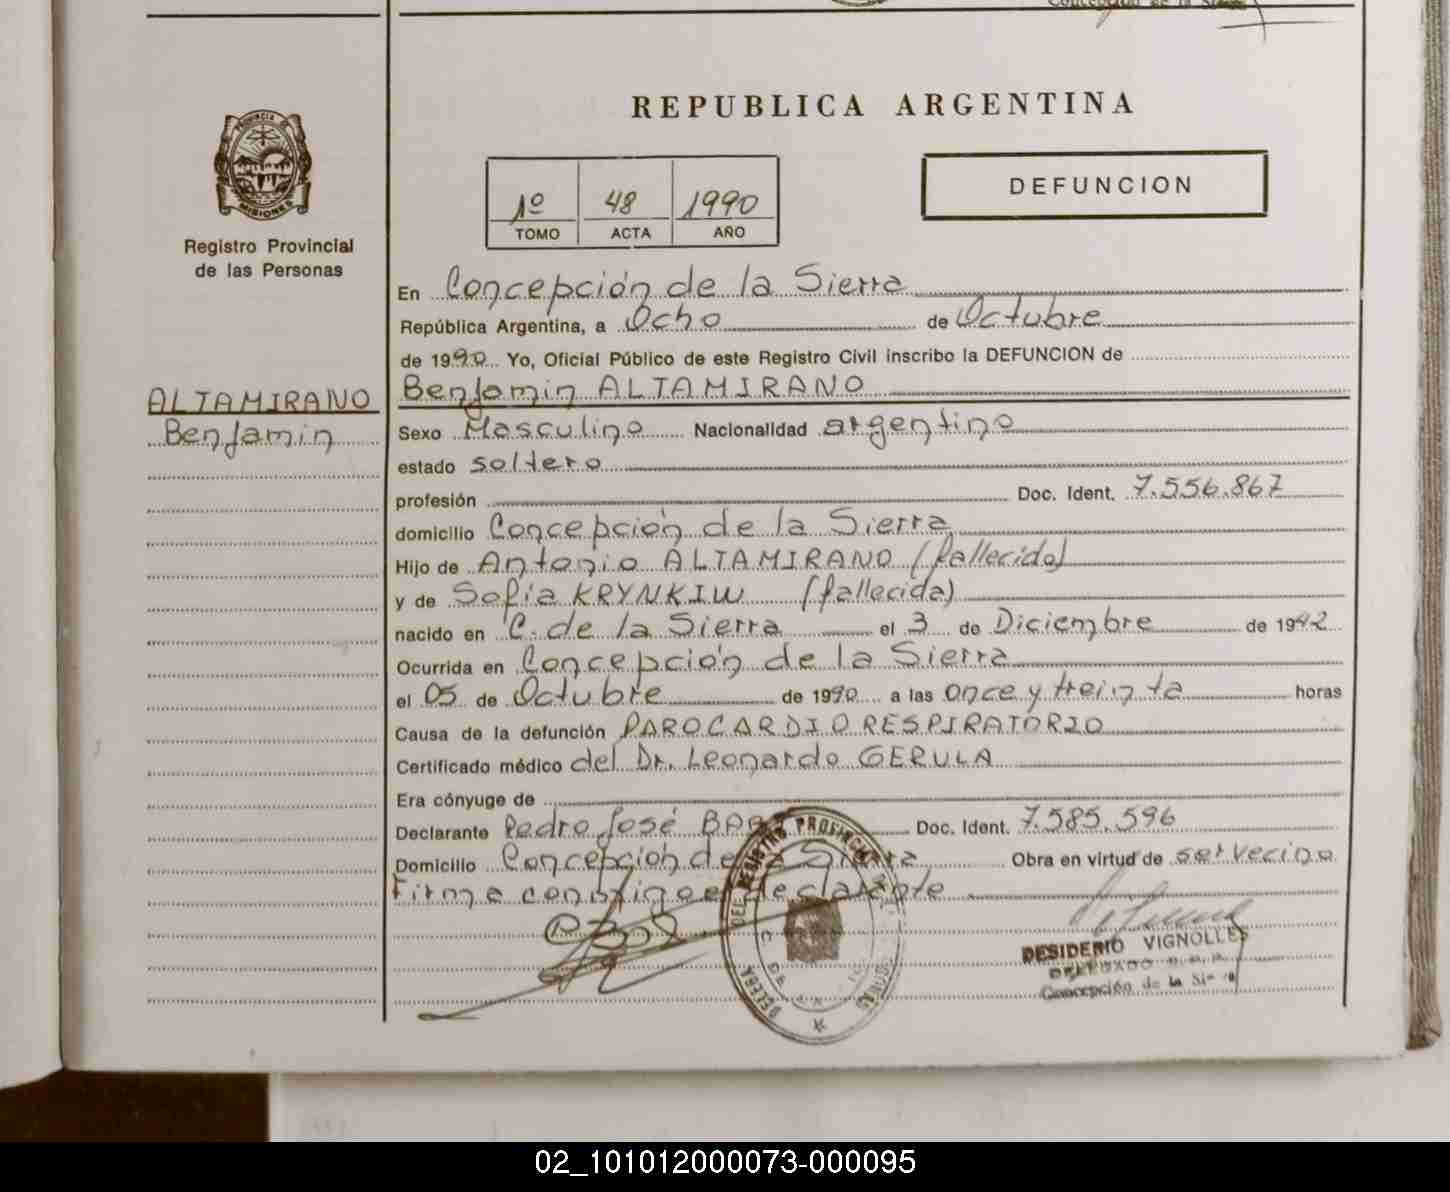 REPUBLICA ARGENTINA
PROVINCIA DE
MISIONES
Registro Provincial
de las Personas
1º 48 1990
TOMO ACTA AÑO
DEFUNCION
En Concepción de la Sierra
República Argentina, a Ocho de Octubre
de 1990 Yo, Oficial Público de este Registro Civil inscribo la DEFUNCION de
Benjamin ALTAMIRANO
ALTAMIRANO
Benjamin
Sexo Masculino Nacionalidad argentino
estado soltero
profesión Doc. Ident. 7.556.867
domicilio Concepción de la Sierra
Hijo de Antonio ALTAMIRANO (fallecido)
y de Sofia KRYNKIW (fallecida)
nacido en C. de la Sierra el 3 de Diciembre de 1942
Ocurrida en Concepción de la Sierra
el 05 de Octubre de 1990 a las once y treinta horas
Causa de la defunción PAROCARDIORESPIRATORIO
Certificado médico del Dr. Leonardo GERULA
Era cónyuge de
Declarante Pedro José Doc. Ident. 7.585.596
Domicilio Concepción de la Sierra Obra en virtud de ser vecino
Firma conmigo el declarante
DESIDERIO VIGNOLLES
DELEGADO R.P.P.
Concepción de la Sierra
02_101012000073-000095